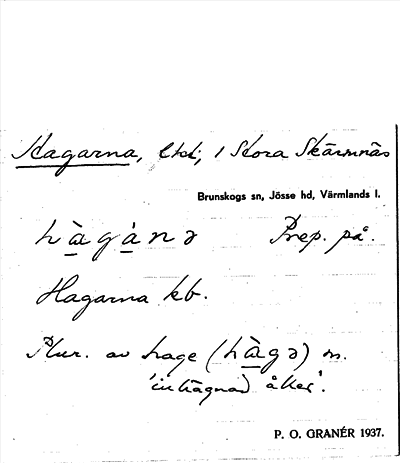 Hagarna, Ctxt, 1 Stora Skärmnäs
Brunskogs sn, Jösse hd, Värmlands l.
hàgànə Prep. på.
Hagarna kb.
Plur. av hage (hàgə) m.
'inhägnad åker'.
P. O. GRANÉR 1937.